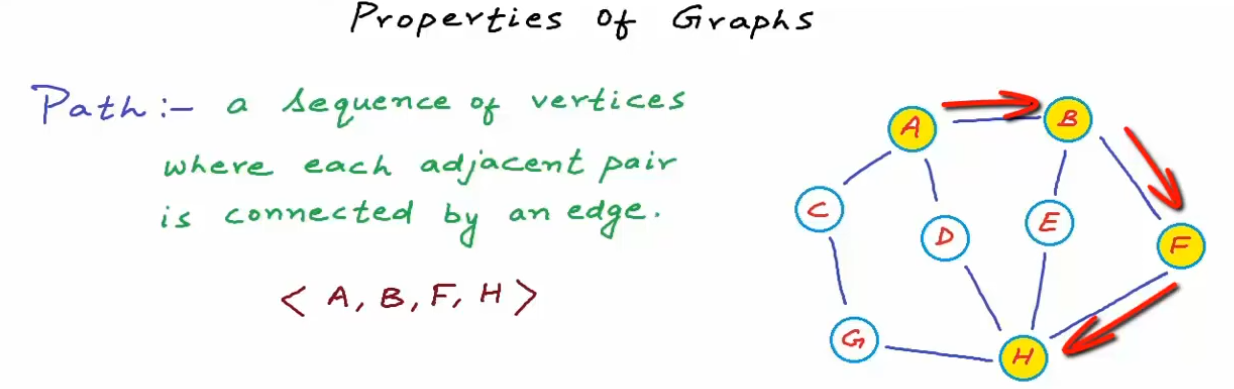 Properties of Graphs
Path:- a sequence of vertices
where each adjacent pair
is connected by an edge.
< A, B, F, H >
A
B
C
D
E
F
G
H